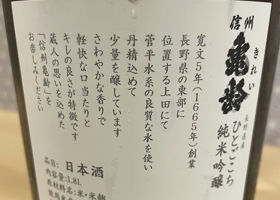 信州
亀齢
きれい
長野県産
ひとごこち
純米吟醸
寛文5年(1665年)創業
長野県の東部に
位置する上田にて
菅平水系の良質な水を使い
丹精込めて
少量を醸しています
さわやかな香りで
軽快な口当たりと
キレの良さが特徴です
蔵人の思いを込めた
「信州亀齢」を
お楽しみください
品目 日本酒
内容量:1.8L
原材料名:米・米麹